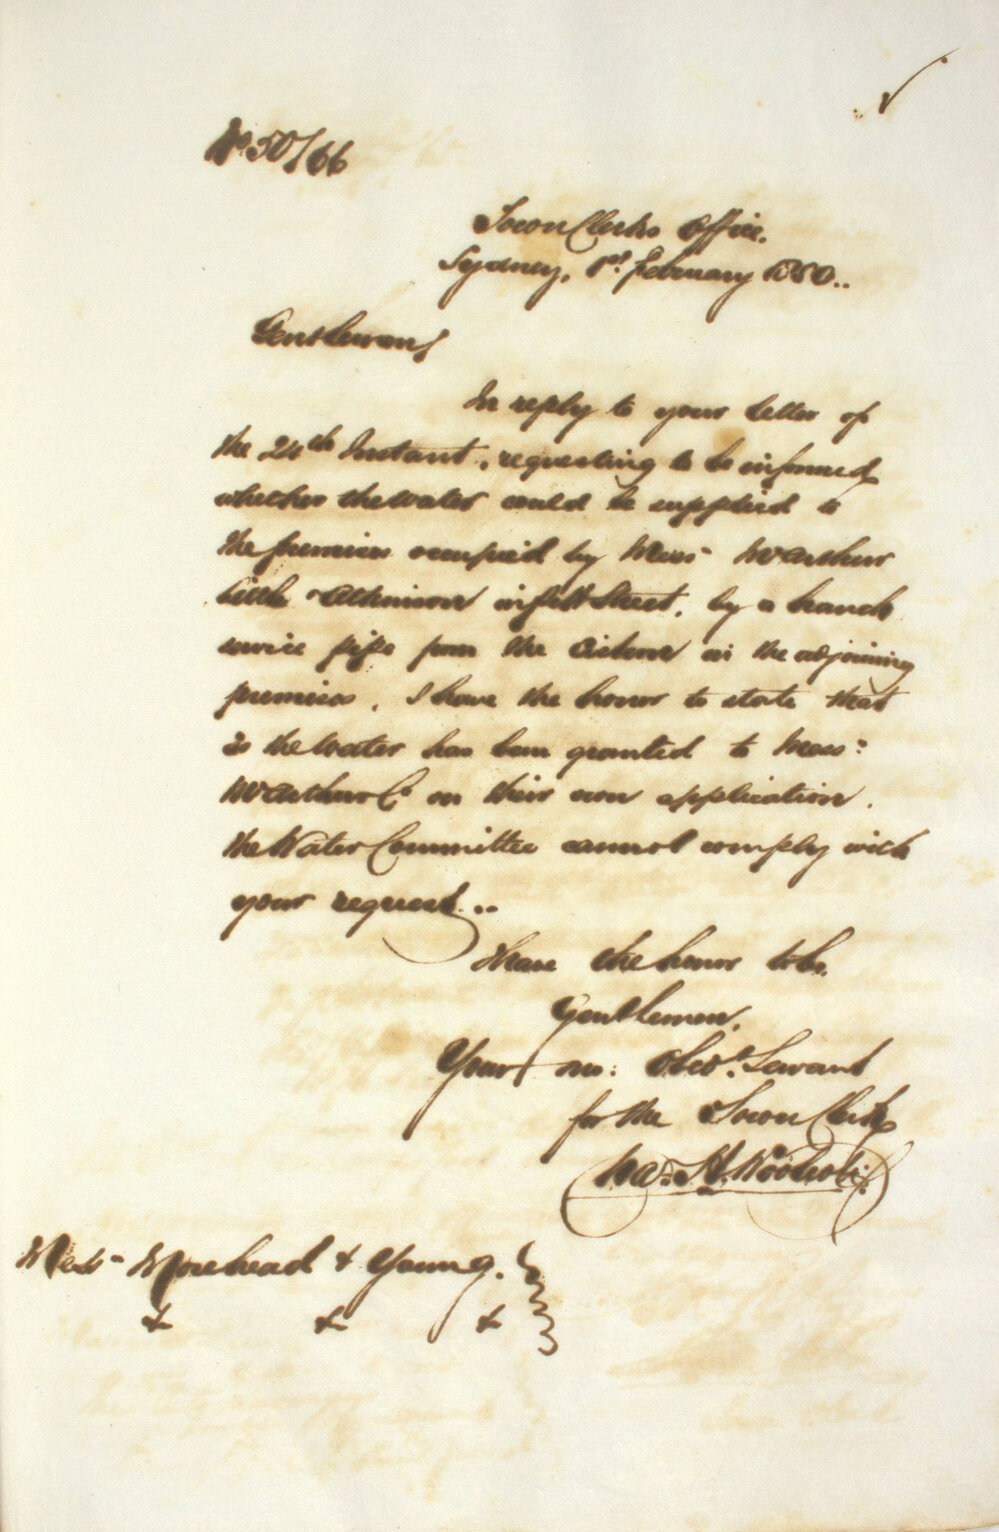 No. 50/66
Town Clerks Office.
Sydney, 1st. February 1850..
Gentlemen,
In reply to your letter of
the 24th Instant, requesting to be informed
whether the water could be supplied to
the premises occupied by Mess: McArthur
Little & Atkinson in Pitt Street, by a branch
service pipe from the Cistern in the adjoining
premises, I have the honor to state that
as the water has been granted to Mess:
McArthur & Co on their own application,
the Water Committee cannot comply with
your request...
I have the honor to be,
Gentlemen,
Your mo: Obedt. Servant
for the Town Clerk
Wm. H.
Mess- Morehead & Young.
& & &